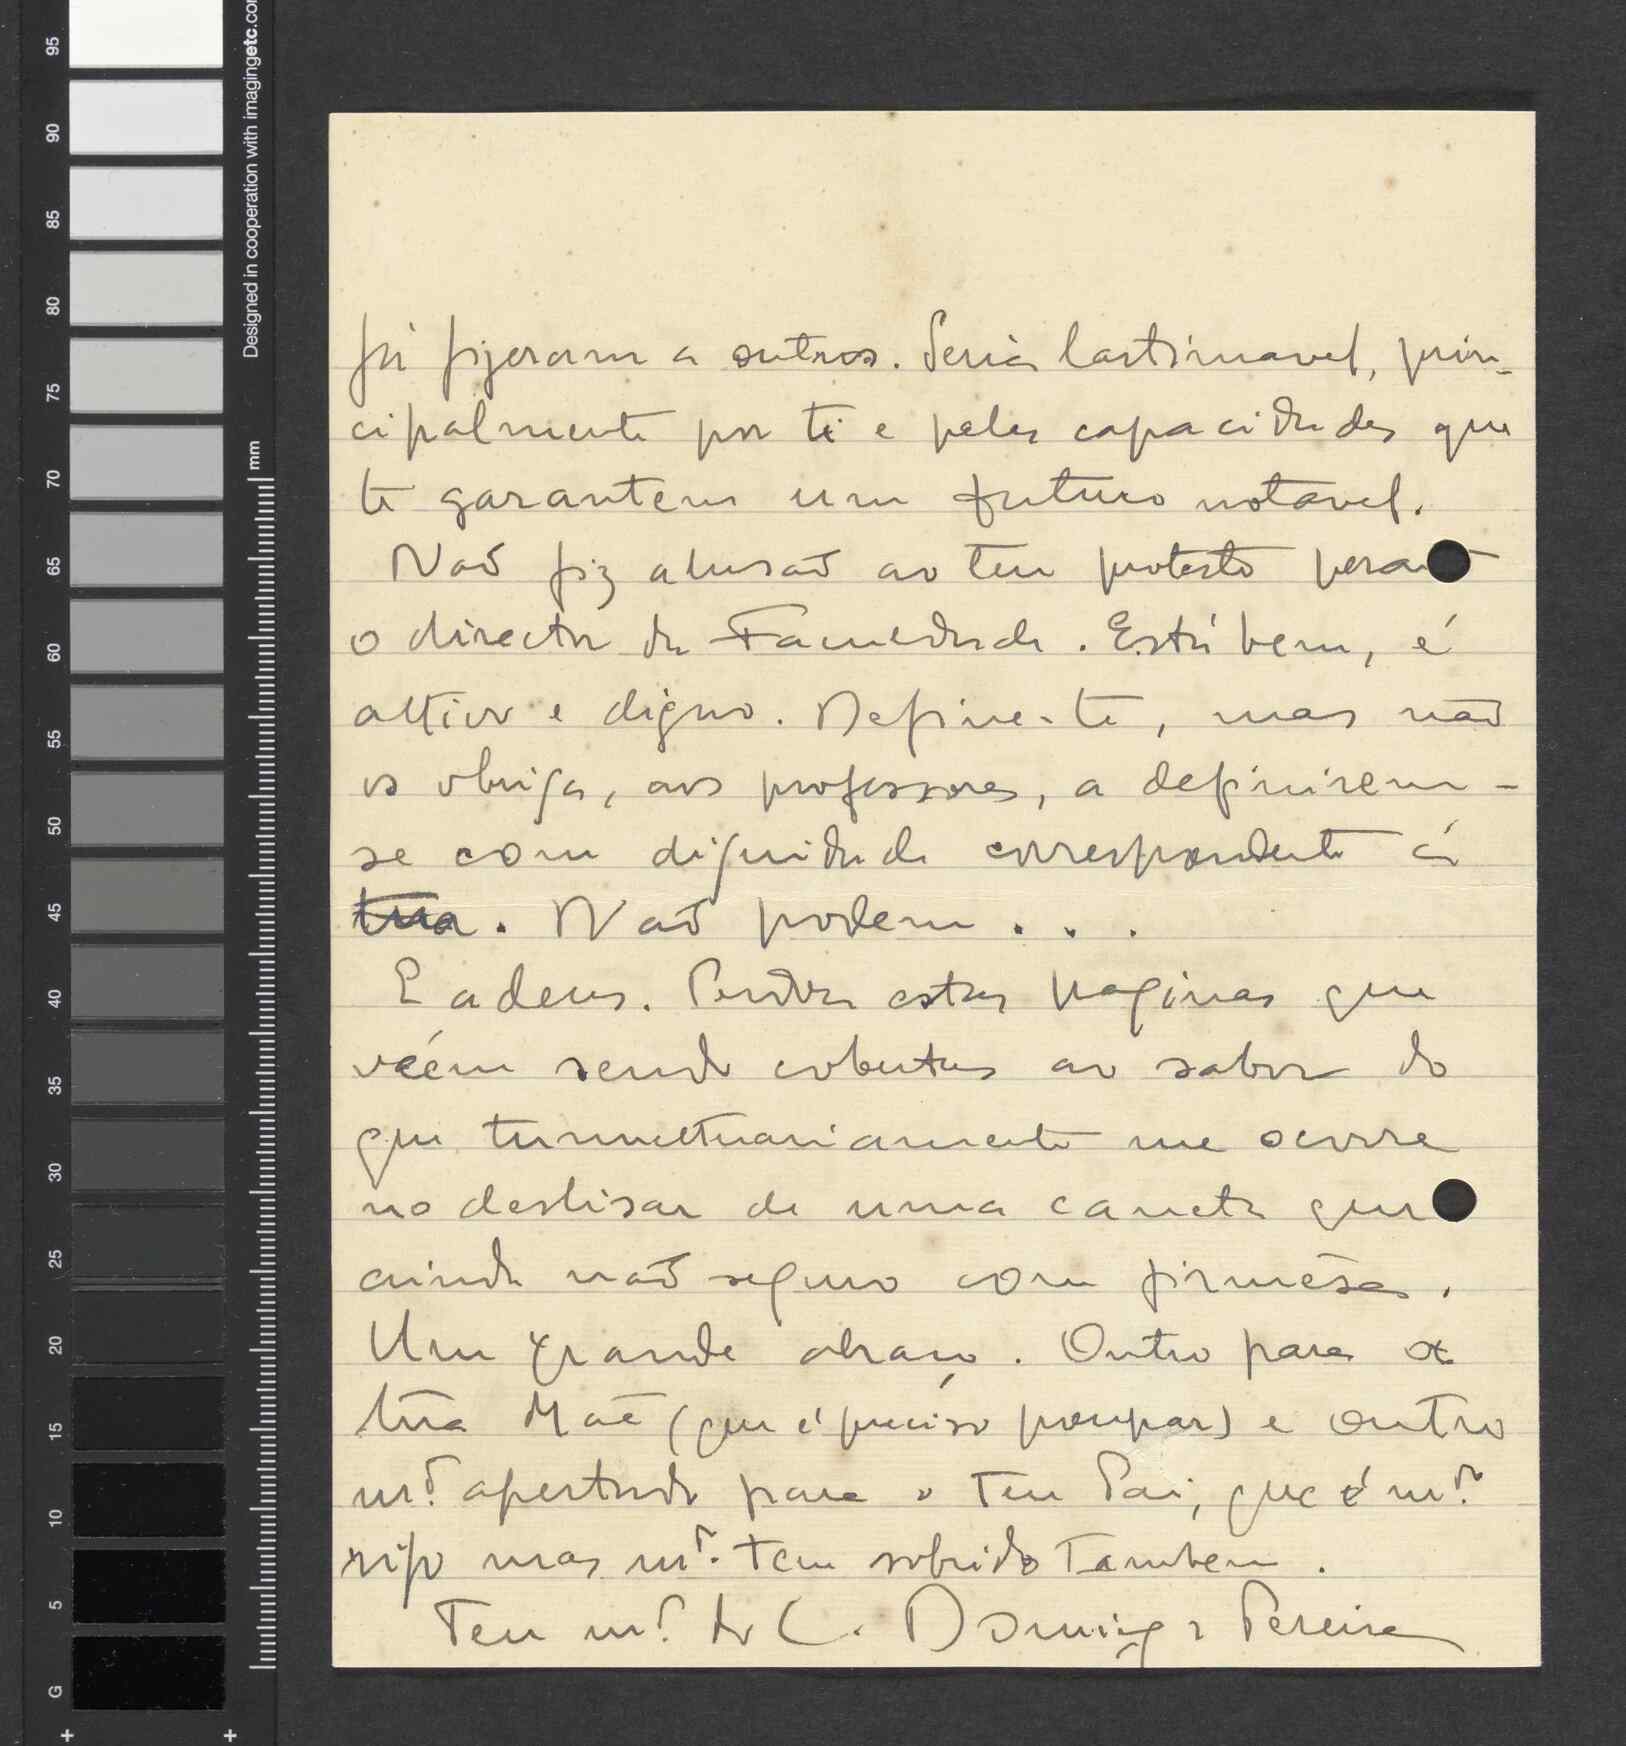 95
90
85
80
75
70
65
60
55
50
45
40
35
30
25
20
15
10
5
G
Designed in cooperation with imagingetc.co
mm
já fizeram a outros. Seria lastimavel, prin-
cipalmente por ti e pelas capacidades que
te garantem um futuro notavel.
Não fiz alusão ao teu protesto
o director da Faculdade. Está bem, é
altivo e digno. Define-te, mas não
os obriga, aos professores, a definirem-
se com dignidade correspondente á
tua. Não podem...
E adeus. Perdôa estas paginas que
véem sendo cobertas ao sabor do
que tumultuariamente me ocorre
no deslisar de uma caneta que
ainda não seguro com firmêsa.
Um grande abraço. Outro para a
tua Mãe (que é preciso poupar) e outro
mt.º apertado para o teu Pai, que é mt.º
rijo mas mt.º tem sofrido tambem.
Teu mt.º do C. Domingos Pereira